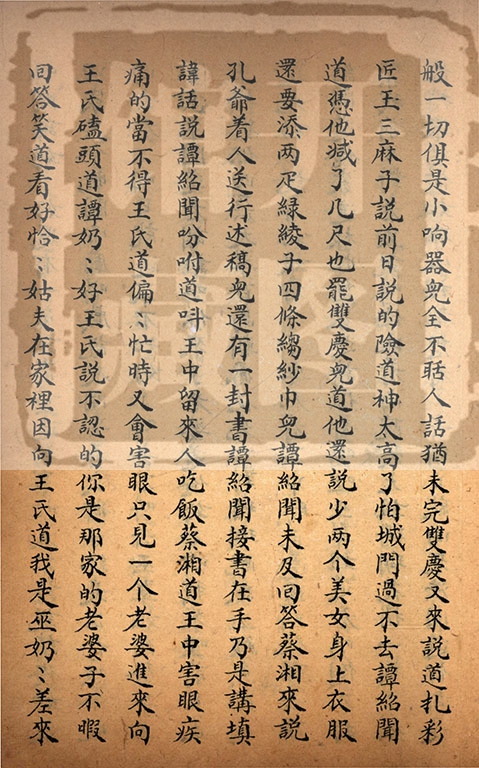 般一切俱是小响器児全不聒人話犹未完雙慶又來説道扎彩
匠王三麻子説前日説的險道神太高了怕城門過不去譚紹聞
道憑他减了几尺也罷雙慶児道他還説少两个美女身上衣服
還要添两疋緑綾子四條縐紗巾児譚紹聞未及回答蔡湘來説
孔爺着人送行述稿児還有一封書譚紹聞接書在手乃是講填
諱話説譚紹聞吩咐道呌王中留來人吃飯蔡湘道王中害眼疾
痛的當不得王氏道偏〻忙時又會害眼只見一个老婆進來向
王氏磕頭道譚奶〻好王氏説不認的你是那家的老婆子不暇
回答笑道看好恰〻姑夫在家裡因向王氏道我是巫奶〻差來